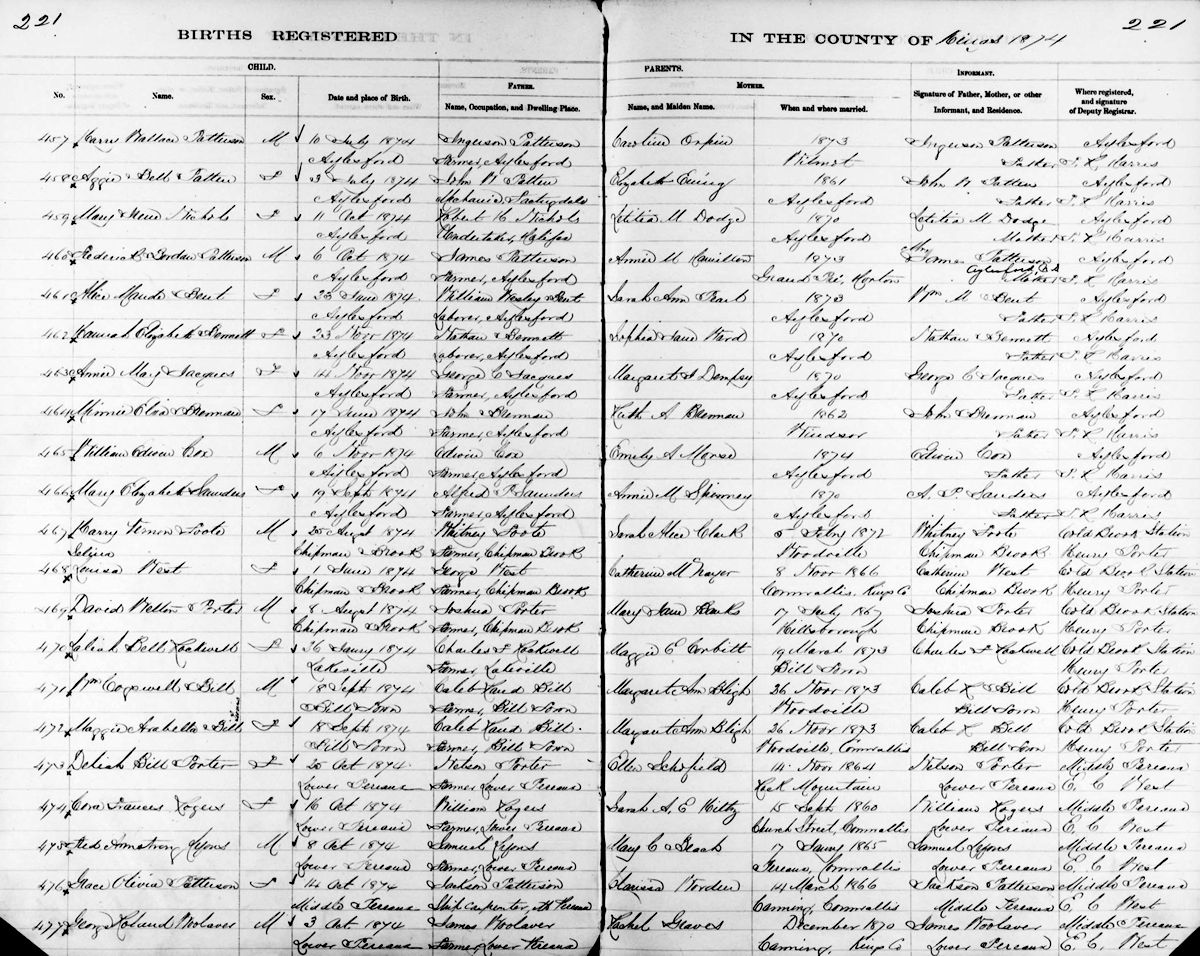 221
221
BIRTHS REGISTERED
IN THE COUNTY OF Kings 1874
CHILD.
PARENTS.
No.
Name.
Sex.
Date and place of Birth.
FATHER.
Name, Occupation, and Dwelling-Place.
MOTHER.
Name, and Maiden Name.
When and where married.
INFORMANT.
Signature of Father, Mother, or other
Informant, and Residence.
Where registered,
and signature
of Deputy Registrar.
457 Harris Wallace Patterson M 10 July 1874 Ingerson Patterson Caroline Orpin 1873 Ingerson Patterson Aylesford
Aylesford Farmer, Aylesford Wilmot Father T. R. Harris
458 Aggie Bell Patten F 3 July 1874 John W Patten Elizabeth Ewing 1861 John W Patten Aylesford
Aylesford Mechanic Aylesford T. R. Harris
459 Mary Irene Nichols F 11 Oct 1874 Robert H Nichols Letitia M Dodge 1870 Letitia M Dodge Aylesford
Aylesford Undertaker, Halifax Aylesford Mother T. R. Harris
460 Frederick Jordan Patterson M 6 Oct 1874 James Patterson Annie M Hamilton 1873 Mrs James Patterson Aylesford
Aylesford Farmer, Aylesford Grand Pré, Horton Aylesford Mother T. R. Harris
461 Alice Maude Bent F 23 June 1874 William Wesley Bent Sarah Ann 1873 Wm M Bent Aylesford
Aylesford Laborer, Aylesford Aylesford Father T. R. Harris
462 Hannah Elizabeth Bennett F 23 Novr 1874 Nathan Bennett Sophia Jane Ward 1870 Nathan Bennett Aylesford
Aylesford Laborer, Aylesford Aylesford Father T. R. Harris
463 Annie Mary Jacques F 14 Novr 1874 George C Jacques Margaret J Dempsy 1870 George C Jacques Aylesford
Aylesford Farmer, Aylesford Aylesford Father T. R. Harris
464 Minnie Eliza Brennan F 17 June 1874 John Brennan Kath A Brennan 1862 John Brennan Aylesford
Aylesford Farmer, Aylesford Windsor Father T. R. Harris
465 William Edwin Cox M 6 Novr 1874 Edwin Cox Emily A Morse 1874 Edwin Cox Aylesford
Aylesford Farmer, Aylesford Aylesford Father T. R. Harris
466 Mary Elizabeth Saunders F 19 Sept 1874 Alfred P Saunders Annie M Spinney 1870 A. P. Saunders Aylesford
Aylesford Farmer, Aylesford Aylesford Father T. R. Harris
467 Harry Vernon Foote M 25 August 1874 Whitney Foote Sarah Alice Clark 5 Feby 1872 Whitney Foote Cold Brook Station
Chipman Brook Farmer, Chipman Brook Woodville Chipman Brook Henry Porter
468 Louisa West F 1 June 1874 George West Catherine McGrayor 8 Novr 1866 Catherine West Cold Brook Station
Chipman Brook Farmer, Chipman Brook Cornwallis, Kings Co Chipman Brook Henry Porter
469 David Welton Porter M 8 August 1874 Joshua Porter Mary Jane 17 July 1867 Joshua Porter Cold Brook Station
Chipman Brook Farmer, Chipman Brook Hillsborough Chipman Brook Henry Porter
470 Bell Rockwell F 26 Jany 1874 Charles F Rockwell Maggie E Corbitt 19 March 1873 Charles F Rockwell Cold Brook Station
Lakeville Farmer Lakeville Bill Town Henry Porter
471 Wm Cogswell Bill M 18 Sept 1874 Caleb Rand Bill Margaret Ann Bligh 26 Novr 1873 Caleb R Bill Cold Brook Station
Bill Town Farmer, Bill Town Woodville Bill Town Henry Porter
472 Maggie Arabella Bill F 18 Sept 1874 Caleb Rand Bill Margaret Ann Bligh 26 Novr 1873 Caleb R Bill Cold Brook Station
Bill Town Farmer, Bill Town Woodville, Cornwallis Bill Town Henry Porter
473 Deliah Bill Porter F 25 Oct 1874 Nelson Porter Ellen Schofield 14 Novr 1864 Nelson Porter Middle Pereaux
Lower Pereaux Farmer Lower Pereaux Mountain Lower Pereaux E. C. West
474 Cora Frances Rogers F 16 Oct 1874 William Rogers Sarah A. E Kilby 15 Sept 1860 William Rogers Middle Pereaux
Lower Pereaux Farmer, Lower Pereaux Church Street, Cornwallis Lower Pereaux E. C. West
475 Fred Armstrong Lyons M 8 Oct 1874 Samuel Lyons Mary C 17 Jany 1865 Samuel Lyons Middle Pereaux
Lower Pereaux Farmer, Lower Pereaux Pereaux, Cornwallis Lower Pereaux E. C. West
476 Grace Olivia Patterson F 14 Oct 1874 Jackson Patterson Clarissa Worden 14 March 1866 Jackson Patterson Middle Pereaux
Middle Pereaux Ship Carpenter, Pereaux Canning, Cornwallis Middle Pereaux E. C. West
477 George Roland Woolaver M 3 Oct 1874 James Woolaver Rachel Graves December 1870 James Woolaver Middle Pereaux
Lower Pereaux Farmer, Lower Pereaux Canning, Kings Co Lower Pereaux E. C. West